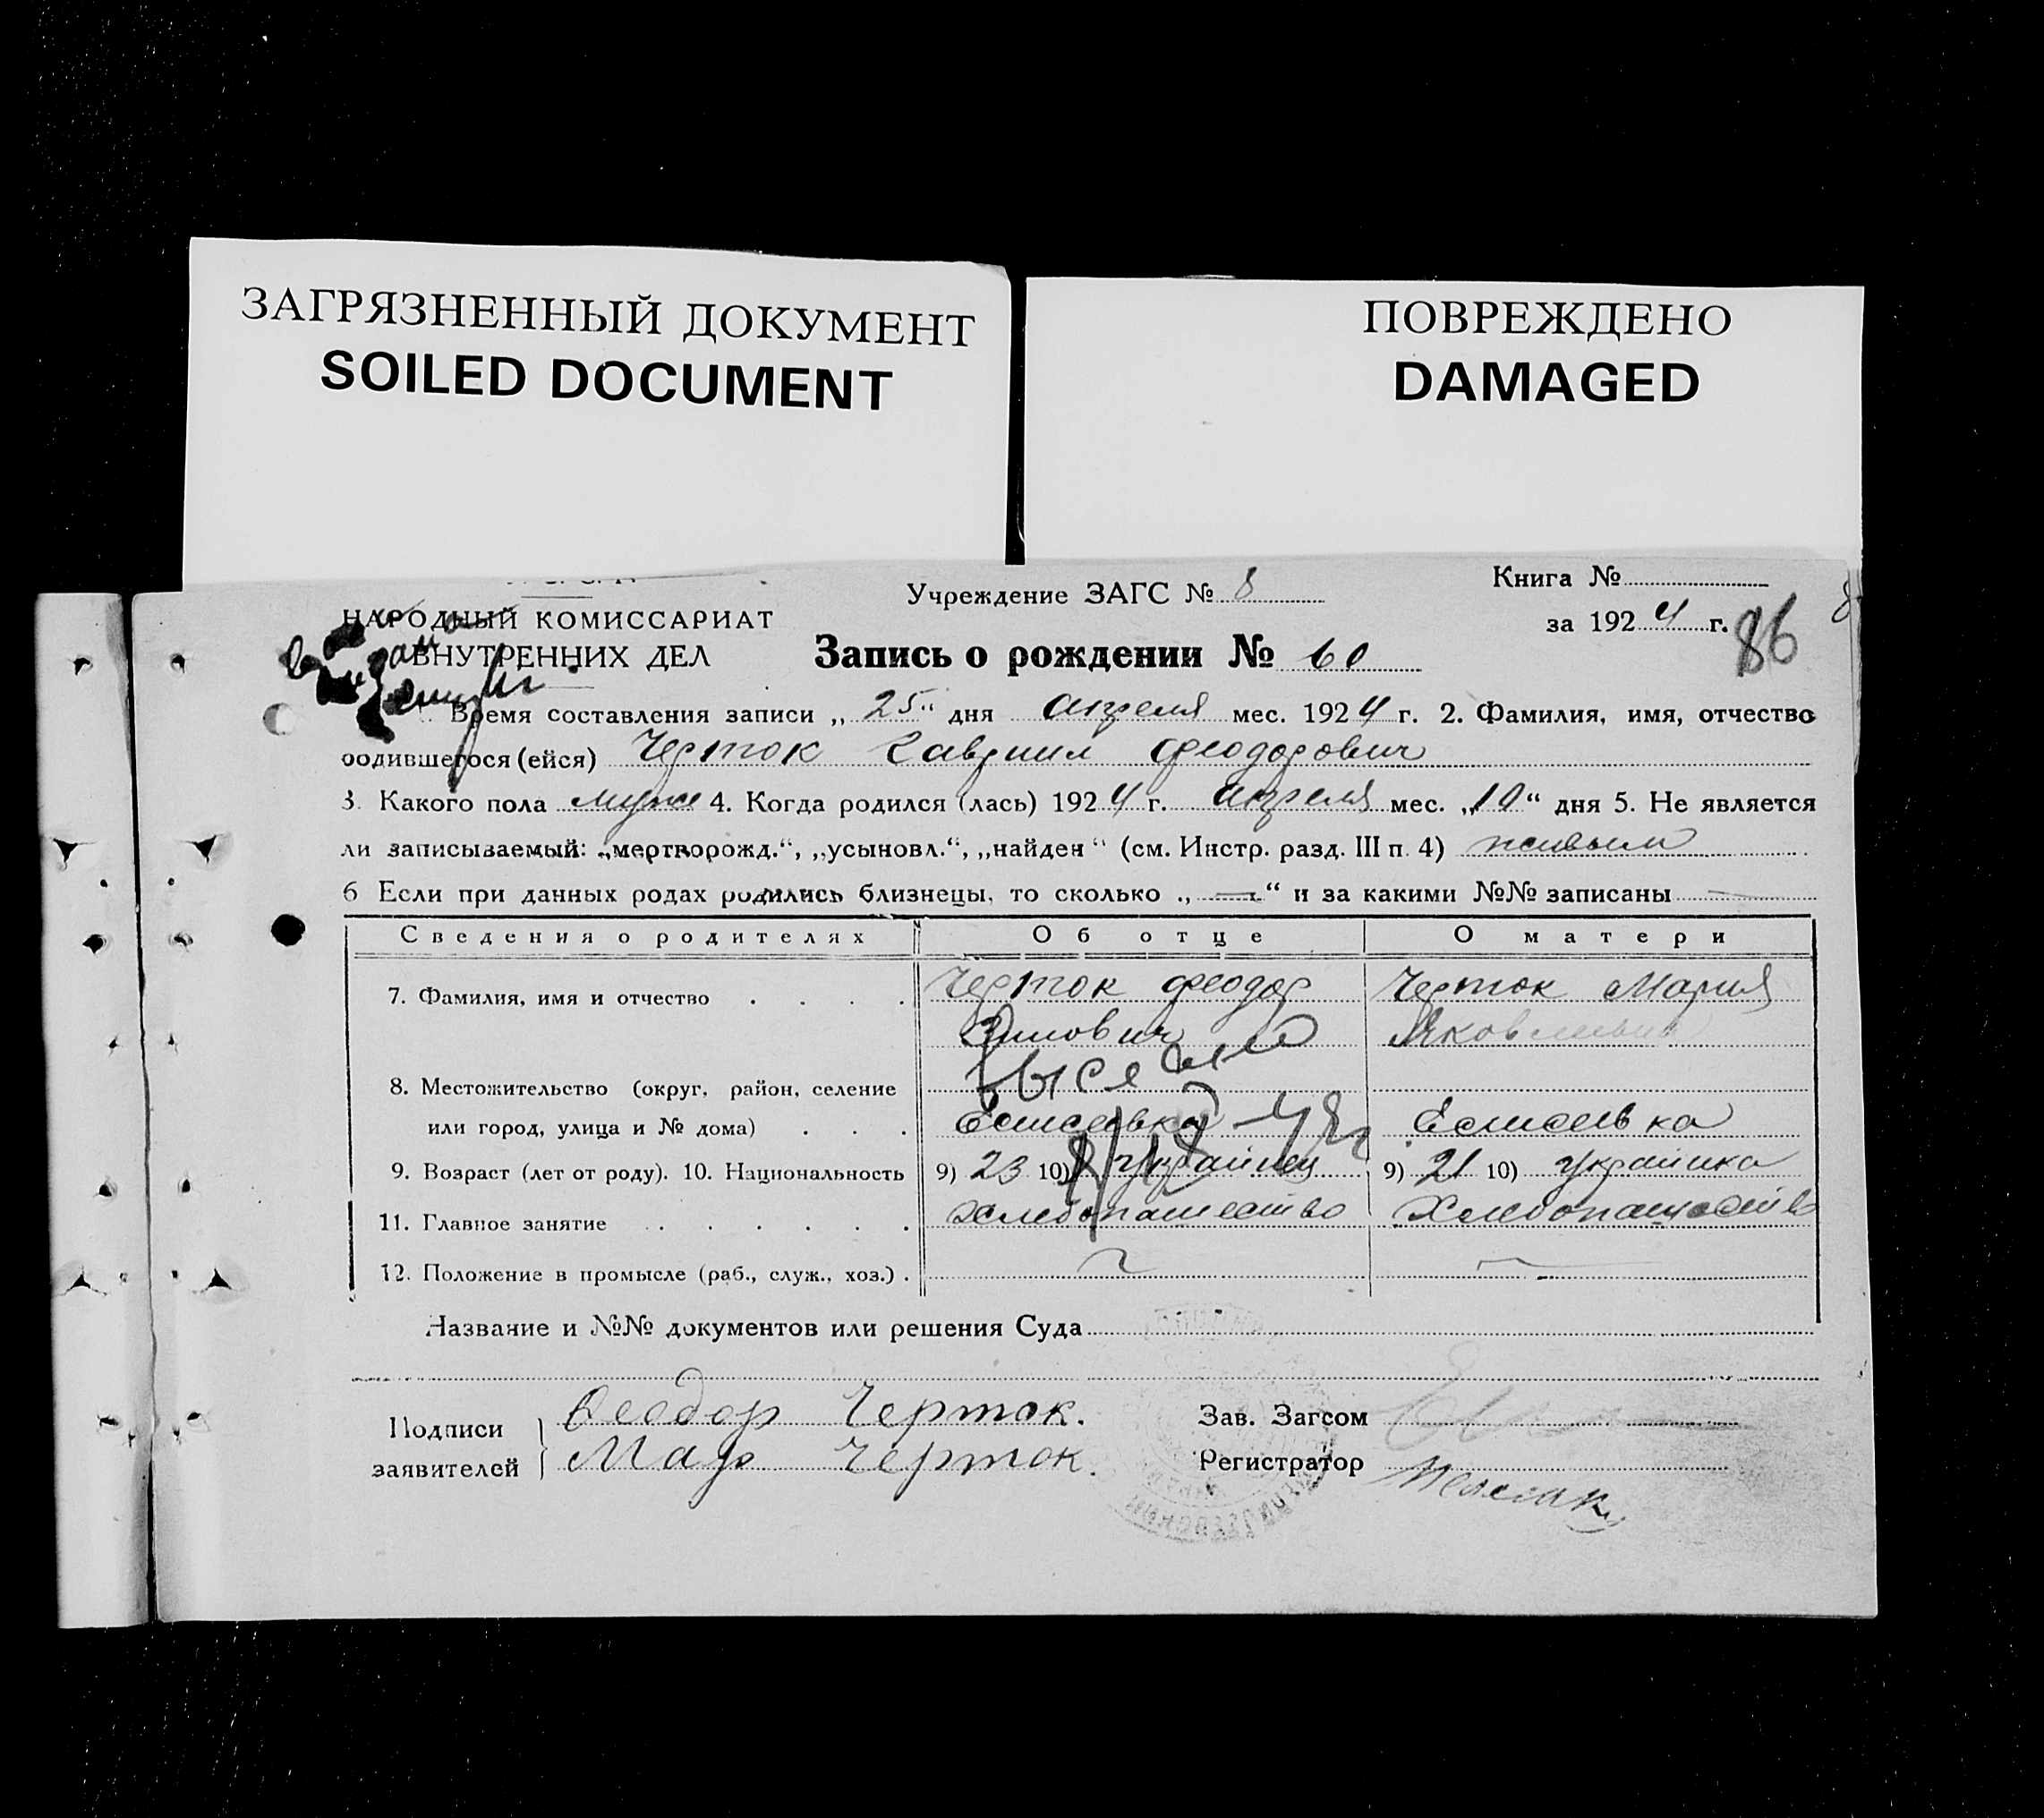 ЗАГРЯЗНЕННЫЙ ДОКУМЕНТ
SOILED DOCUMENT
ПОВРЕЖДЕНО
DAMAGED
Учреждение ЗАГС № 8
Книга №
за 1924 г.
86
НАРОДНЫЙ КОМИССАРИАТ
ВНУТРЕННИХ ДЕЛ
Запись о рождении № 60
Время составления записи „25“ дня апреля мес. 1924 г. 2. Фамилия, имя, отчество
родившегося (ейся) Черток Гавриил Феодорович
3. Какого пола муж 4. Когда родился (лась) 1924 г. апреля мес. „10“ дня 5. Не является
ли записываемый: „мертворожд.“, „усыновл.“, „найден“ (см. Инстр. разд. III п. 4) живым
6 Если при данных родах родились близнецы, то сколько „—“ и за какими №№ записаны —
Сведения о родителях Об отце О матери
7. Фамилия, имя и отчество . . . . Черток Феодор Черток Мария
Яковлевна
8. Местожительство (округ, район, селение
или город, улица и № дома) . . . Елисеевка Елисеевка
9. Возраст (лет от роду). 10. Национальность 9) 23 10) Украинец 9) 21 10) Украинка
11. Главное занятие . . . . . . Хлебопашество Хлебопашество
12. Положение в промысле (раб., служ., хоз.) . — —
Название и №№ документов или решения Суда
Подписи
заявителей
Феодор Черток.
Мар Черток.
Зав. Загсом
Регистратор